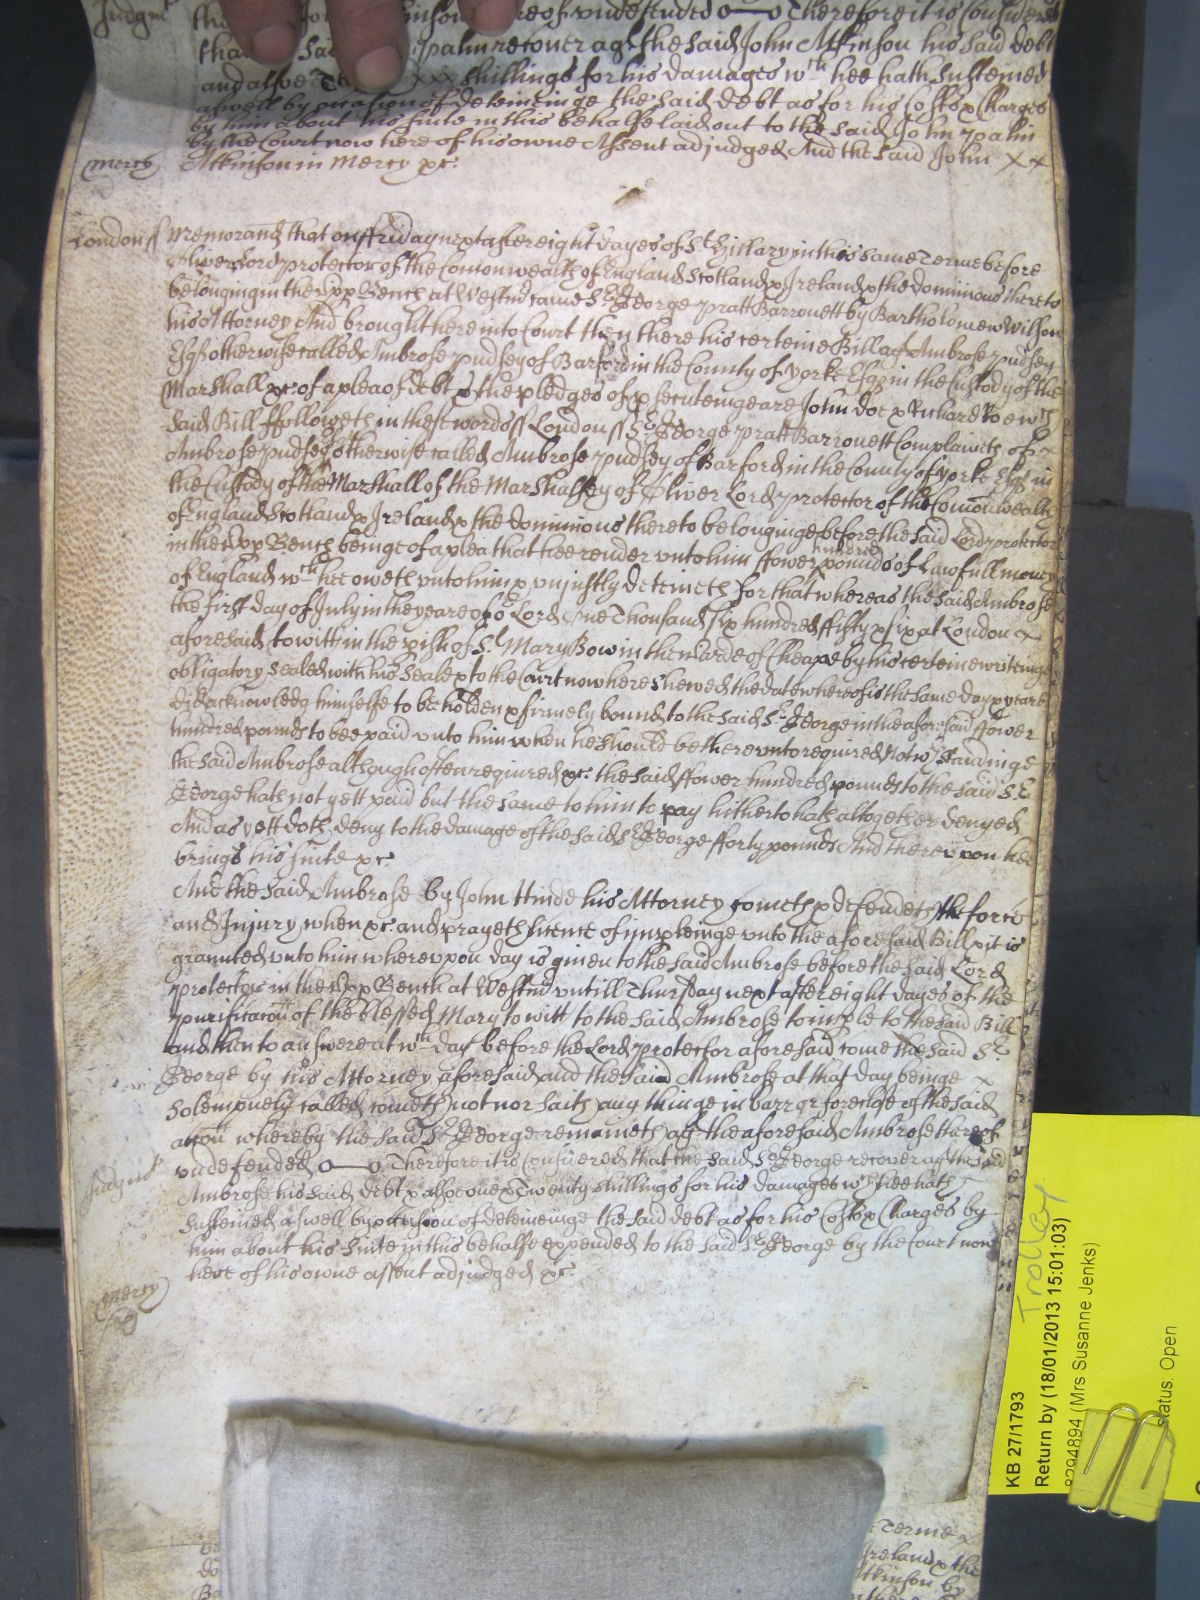 Judgmt
the ... John Atkinson thereof undefended o—o Therefore it is Considered
that ... said ... palm recover agt the said John Atkinson his said debt
and alsoe ... xx shillings for his damages wch hee hath susteined
aswell by occasion of deteineinge the said debt as for his Costs & Charges
by him about his suite in this behalfe laid out to the said John palm
by the Court now here of his owne Assent adjudged And the said John x x
mercy Atkinson in mercy &c.
London ss Memorand that on ffriday next after eight dayes of St Hillary in this same Terme before
Oliver Lord protector of the Comonwealth of England Scotland & Ireland & the dominions thereto
belonging in the upp Bench at Westmr came Sr George pratt Barronett by Bartholomew Wilson
his Attorney And brought here into Court then there his certeine Bill agt Ambrose pudsey
Esqr otherwise called Ambrose pudsey of Barford in the County of yorke Esqr in the Custody of the
Marshall &c of a plea of debt & the pledges of p'secuteinge are John doe & Richard Roe wch
said Bill ffolloweth in these words ss London ss Sr George pratt Barronett Complaineth of x
Ambrose pudsey otherwise called Ambrose pudsey of Barford in the County of yorke Esqr in
the Custody of the Marshall of the Marshalsey of Oliver Lord protector of the Comonwealth
of England Scotland & Ireland & the dominions thereto belonginge before the said Lord protector
in the upp Bench beinge of a plea that hee render unto him ffower hundred pounds of Lawfull money
of England wch hee oweth unto him & unjustly deteineth for that whereas the said Ambrose
the first day of July in the yeare of or Lord One Thousand six hundred ffifty & six at London x
aforesaid to witt in the pish of St Mary Bow in the warde of Cheape by his certeine writeinge
obligatory sealed with his seale & to the Court now here shewed the date whereof is the same day & yeare
did acknowledg himselfe to be holden & firmely bound to the said Sr George in the aforesaid ffower
hundred pounds to bee paid unto him when he should be thereunto required Notwthstandinge
the said Ambrose although often required &c. the said ffower hundred pounds to the said Sr
George hath not yett paid but the same to him to pay hitherto hath altogether denyed
And as yett doth deny to the damage of the said Sr George fforty pounds And thereupon hee
brings his suite &c
And the said Ambrose by John Hinde his Attorney cometh & defendeth the force
and Injury when &c. and prayeth licence of impleinge unto the aforesaid Bill & it is
graunted unto him whereupon day is given to the said Ambrose before the said Lord
protector in the upp Bench at Westmr untill Thursday next after eight dayes of the
purificacon of the Blessed Mary to witt to the said Ambrose to imple to the said Bill
and then to answere at wch day before the Lord protector aforesaid come the said Sr
George by his Attorney aforesaid and the said Ambrose at that day beinge x
solempnely called cometh not nor saith any thinge in barr or foreclose of the said
accon whereby the said Sr George remaineth agt the aforesaid Ambrose thereof
Judgmt undefended o—o Therefore it is Considered that the said Sr George recover agt the said
Ambrose his said debt & alsoe one & Twenty shillings for his damages wch hee hath
susteined aswell by occasion of deteineinge the said debt as for his Costs & Charges by
him about his suite in this behalfe expended to the said Sr George by the Court now
here of his owne assent adjudged &c.
mercy
Terme x
Ireland & the
Atkinson by
KB 27/1793
Return by (18/01/2013 15:01:03)
8294894 (Mrs Susanne Jenks)
Status: Open
Trolley